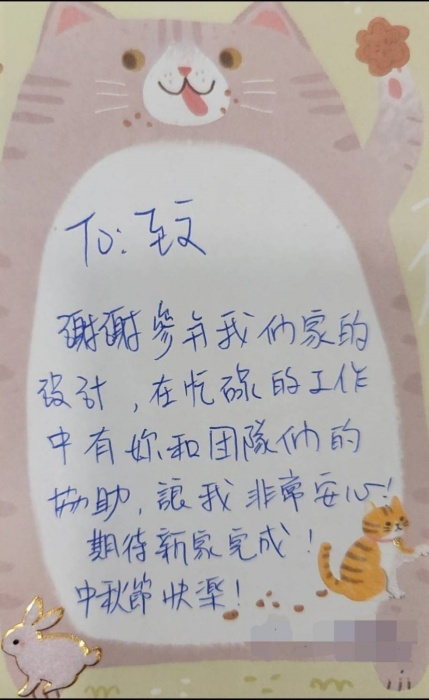 To: 至文
謝謝參與我们家的
設計，在忙碌的工作
中有妳和团隊们的
協助，讓我非常安心!
期待新家完成!
中秋節快樂!